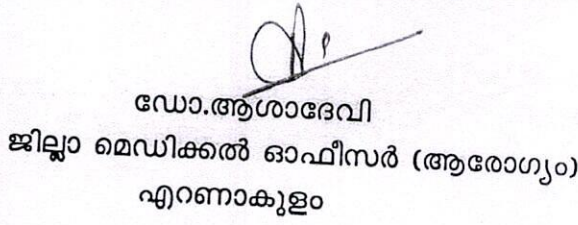 ഡോ.ആശാദേവി
ജില്ലാ മെഡിക്കൽ ഓഫീസർ (ആരോഗ്യം)
എറണാകുളം